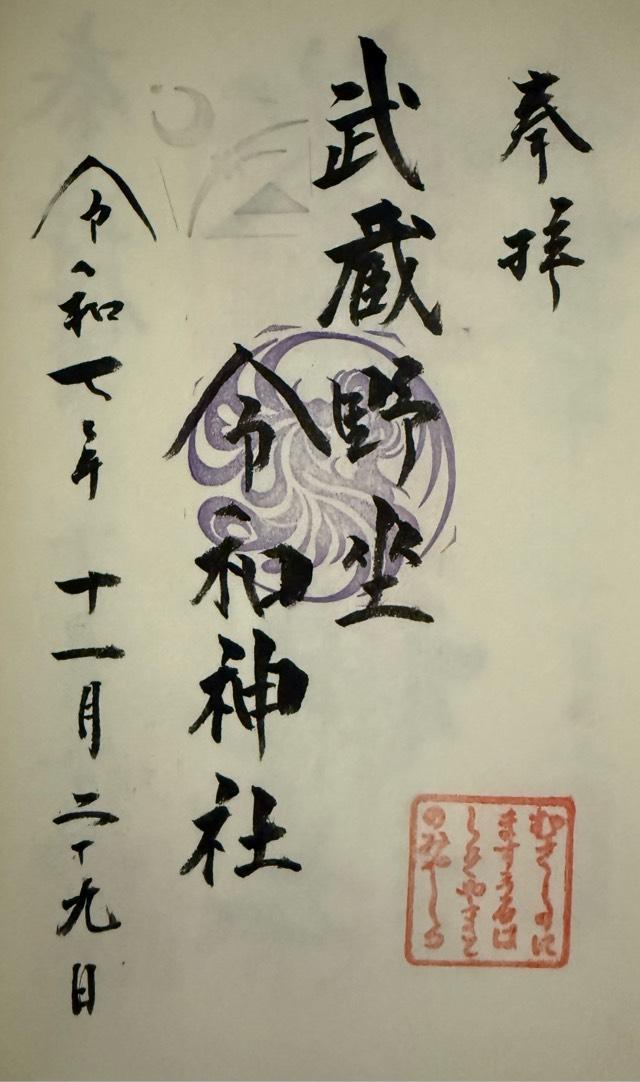 奉拝
武蔵野坐
令和神社
令和七年 十一月二十九日
むさしのに
ますうるは
しきやまと
のみやしろ